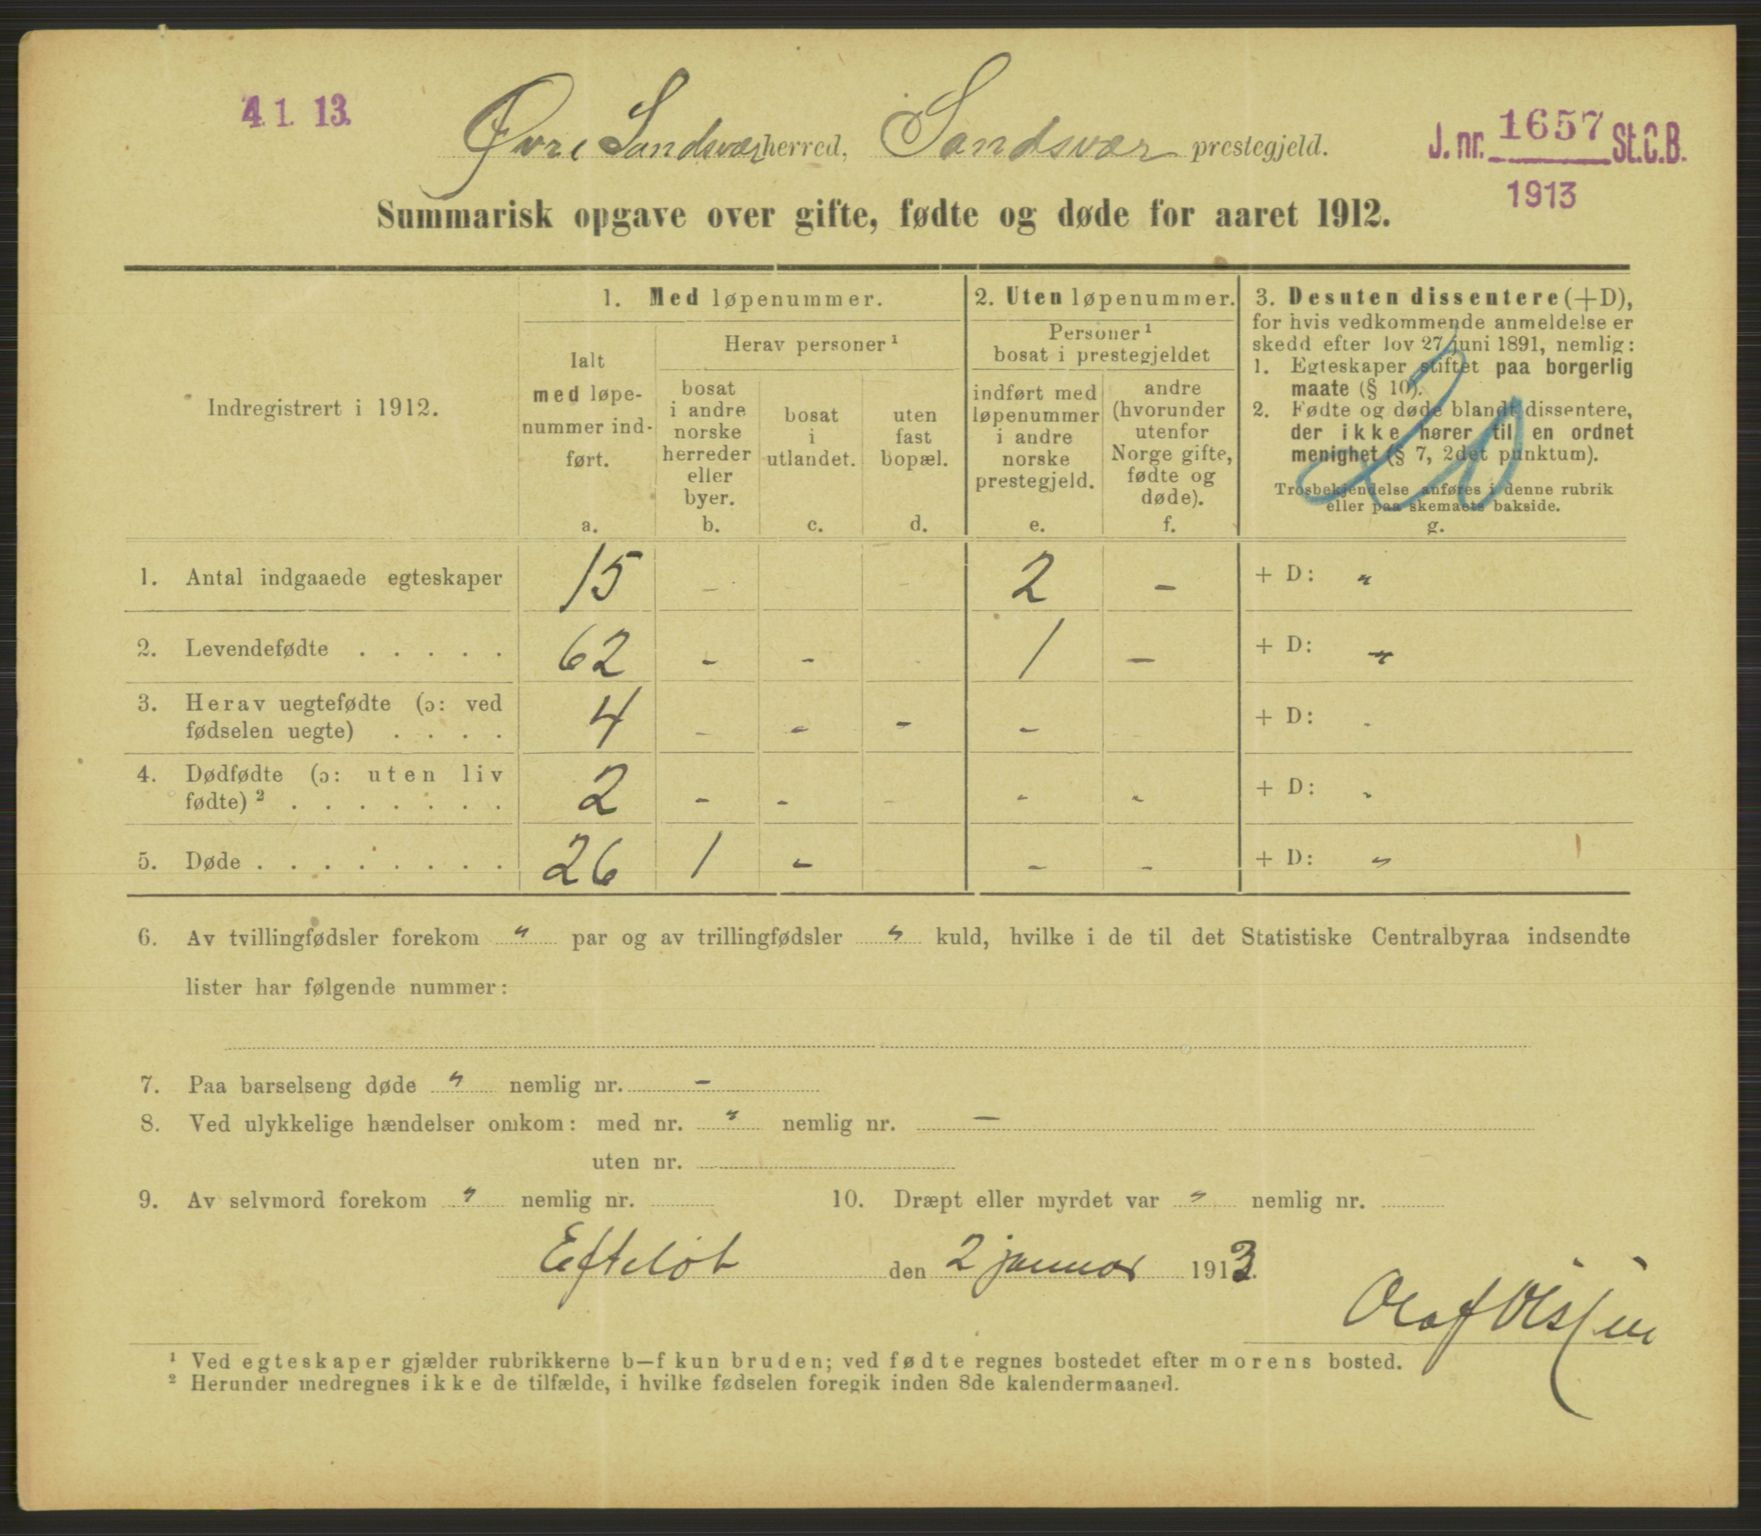 4. 1. 13.
Øvre Sandsvær herred, Sandsvær prestegjeld.
J. nr. 1657 St.C.B.
1913
Summarisk opgave over gifte, fødte og døde for aaret 1912.
Indregistrert i 1912.
1. Med løpenummer.
Ialt
med løpe-
nummer ind-
ført.
a.
Herav personer ¹
bosat
i andre
norske
herreder
eller
byer.
b.
bosat
i
utlandet.
c.
uten
fast
bopæl.
d.
2. Uten løpenummer.
Personer ¹
bosat i prestegjeldet
indført med
løpenummer
i andre
norske
prestegjeld.
e.
andre
(hvorunder
utenfor
Norge gifte,
fødte og
døde).
f.
3. Desuten dissentere (+D),
for hvis vedkommende anmeldelse er
skedd efter lov 27 juni 1891, nemlig:
1. Egteskaper stiftet paa borgerlig
maate (§ 10).
2. Fødte og døde blandt dissentere,
der ikke hører til en ordnet
menighet (§ 7, 2det punktum).
Trosbekjendelse anføres i denne rubrik
eller paa skemaets bakside.
g.
1. Antal indgaaede egteskaper 15 - 2 - + D: "
2. Levendefødte . . . . . 62 - - 1 - + D: "
3. Herav uegtefødte (ɔ: ved
fødselen uegte) . . . . 4 - - - - + D: -
4. Dødfødte (ɔ: uten liv
fødte) ² . . . . . . . 2 - - - - + D: -
5. Døde . . . . . . . . 26 1 - - - + D: "
6. Av tvillingfødsler forekom " par og av trillingfødsler " kuld, hvilke i de til det Statistiske Centralbyraa indsendte
lister har følgende nummer:
7. Paa barselseng døde " nemlig nr. -
8. Ved ulykkelige hændelser omkom: med nr. " nemlig nr. -
uten nr.
9. Av selvmord forekom " nemlig nr. 10. Dræpt eller myrdet var " nemlig nr.
Efteløt den 2 januar 1913.
Olaf Olssen
¹ Ved egteskaper gjælder rubrikkerne b—f kun bruden; ved fødte regnes bostedet efter morens bosted.
² Herunder medregnes ikke de tilfælde, i hvilke fødselen foregik inden 8de kalendermaaned.